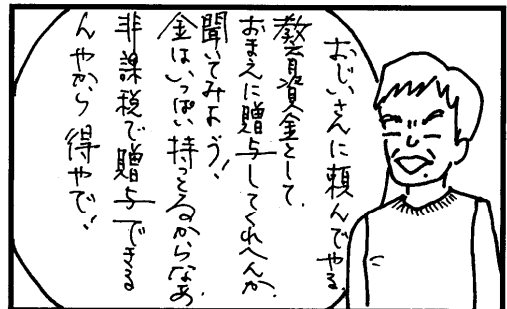 おじいさんに頼んでやる。
教育資金として、
おまえに贈与してくれへんか、
聞いてみよう！
金はいっぱい持ってるからなあ、
非課税で贈与できる
んやから得やで！